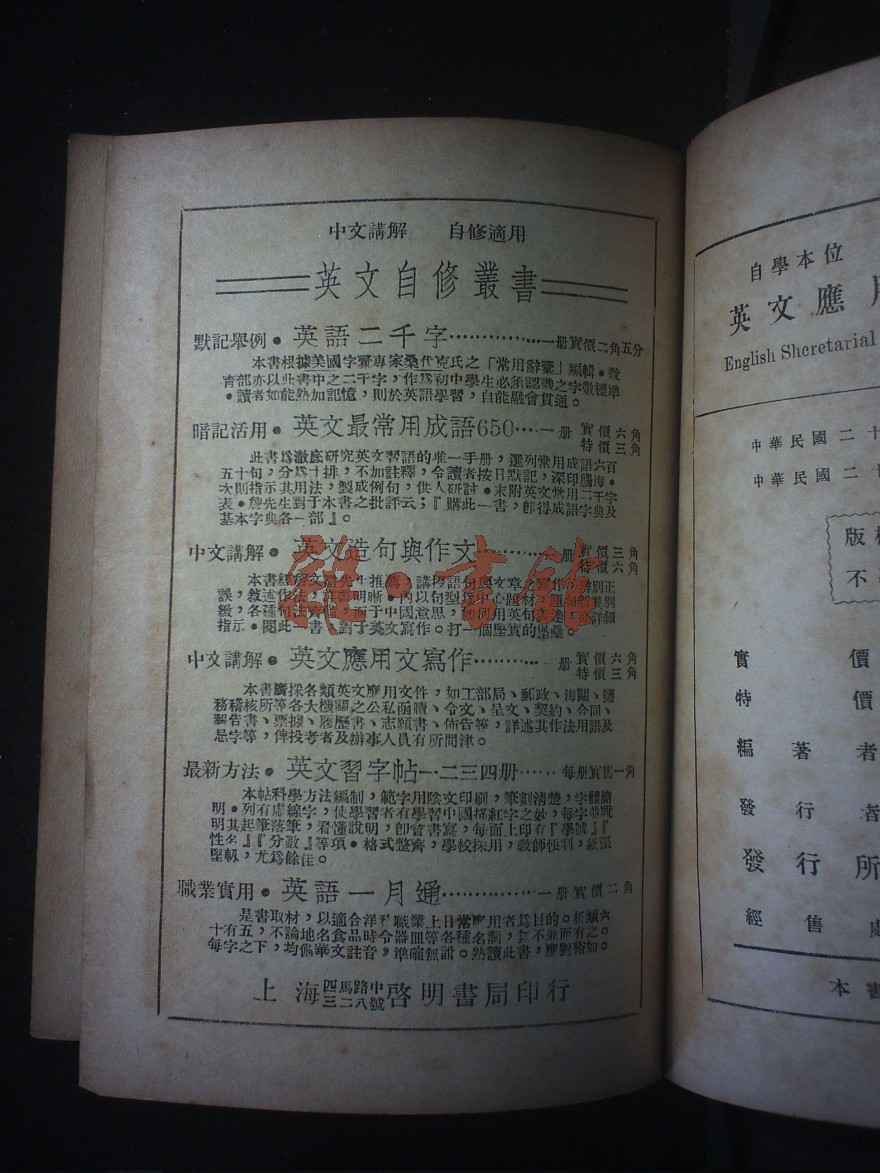 中文講解　自修適用
英文自修叢書
默記舉例・英語二千字………一册實價二角五分
本書根據美國字彙專家桑代克氏之「常用辭彙」編輯・敎
育部亦以此書中之二千字，作爲初中學生必須認識之字數標準
・讀者如能熟加記憶，則於英語學習，自能融會貫通。
暗記活用・英文最常用成語650…一册 實價六角
特價三角
此書爲澈底研究英文習語的唯一手册，選列常用成語六百
五十句，分爲十排，不加註釋，令讀者按日默記，深印腦海・
次則指示其用法，製成例句，供人研討・末附英文常用二千字
表・詹先生對于本書之批評云；『購此一書，卽得成語字典及
基本字典各一部』。
中文講解・英文造句與作文………一册 實價三角
特價六角
本書經詹文滸先生推薦，講授語句與文章之寫作
誤，敍述作法，詳盡明晰・內以句型爲中心題材，
緻，各種句法齊備，而于中國意思，如何用英句，詳細
指示・閱此一書，對于英文寫作。打一個堅實的堡壘。
中文講解・英文應用文寫作………一册 實價六角
特價三角
本書廣採各類英文應用文件，如工部局、郵政、海關、鹽
務稽核所等各大機關之公私函牘、令文、呈文、契約、合同、
報告書、票據、履歷書、志願書、佈告等，詳述其作法用語及
忌字等，俾投考者及辦事人員有所問津。
最新方法・英文習字帖一・二三四册…… 每册實售一角
本帖科學方法編制，範字用陰文印刷，筆劃清楚，字體簡
明・列有虛線字，使學習者有學習中國描紅字之妙，每字並說
明其起筆落筆，看懂說明，卽會書寫，每面上印有『學號』『
性名』『分數』等項・格式整齊，學校採用，敎師便利，紙張
堅韌，尤爲餘佳。
職業實用・英語一月通…………一册實價二角
是書取材，以適合洋行職業上日常應用者爲目的。析類六
十有五，不論地名食品時令器皿等各種名詞，無不兼而有之。
每字之下，均備華文註音，準確無訛。熟讀此書，應對裕如。
上海四馬路中三二八號啓明書局印行
雜・書館
自學本位
英文應用
English Shcretarial
中華民國二十
中華民國二十
版權
不
實價
特價
編著者
發行者
發行所
經售處
本書